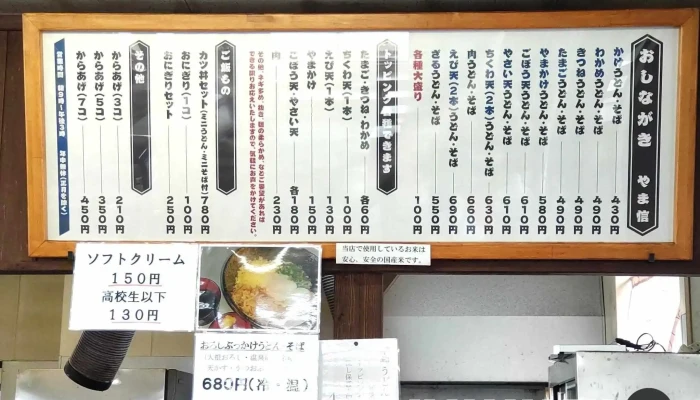 おしながき やま信
かけうどん・そば 430円
わかめうどん・そば 490円
きつねうどん・そば 490円
たまごうどん・そば 490円
やまかけうどん・そば 580円
ごぼう天うどん・そば 610円
やさい天うどん・そば 610円
ちくわ天(2本)うどん・そば 630円
肉うどん・そば 660円
えび天(2本)うどん・そば 690円
ざるうどん・そば 550円
各種大盛り 100円
たまご・きつね・わかめ 各60円
ちくわ天(1本) 100円
えび天(1本) 130円
やまかけ 150円
ごぼう天・やさい天 各180円
肉 230円
その他、ネギ多め、抜き、麺の柔らかめ、などご要望があれば
できる限りお応えいたしますので、気軽にお声をかけてください。
ご飯もの
カツ丼セット(ミニうどん・ミニそば付)780円
おにぎり(1コ) 100円
おにぎりセット 250円
その他
からあげ(3コ) 210円
からあげ(5コ) 350円
からあげ(7コ) 450円
営業時間 朝9時〜午後3時 年中無休(正月を除く)
ソフトクリーム
150円
高校生以下
130円
当店で使用しているお米は
安心、安全の国産米です。
おろしぶっかけうどん・そば
680円(冷・温)